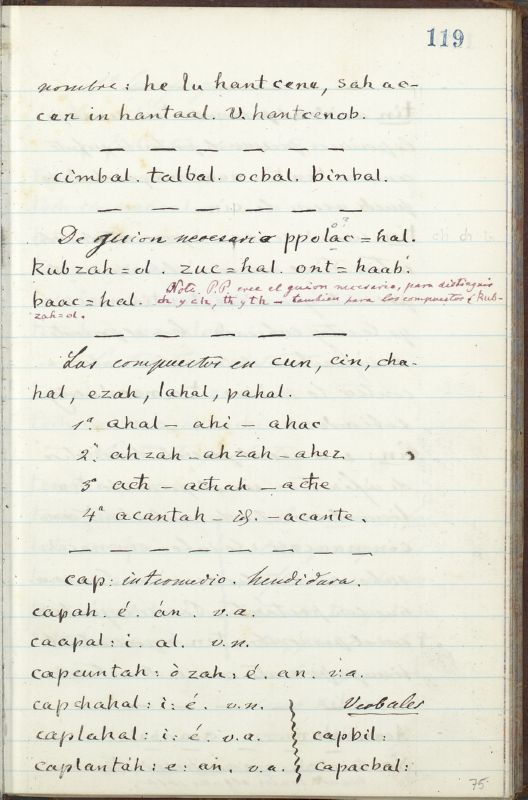 119
nombre: he lu hantcene, sah ac-
cen in hantaal. V. hantcenob.
cimbal. talbal. ocbal. binbal.
De guion necesario ppolac=hal.
kubzah=d. zuc=hal. ont=haab.
baac=hal. Nota. P.P. cree el guion necesario, para distinguir
ch y cħ, tħ y th — tambien para los compuestos kub-
zah=d.
Los compuestos en cun, cin, cha-
hal, ezah, lahal, pahal.
1ª ahal — ahi — ahac
2ª ahzah — ahzah — ahez
3ª acħ — acħah — acħe
4ª acantah — id. — acante.
cap: intermedio. hendidura.
capah. é. án. v.a.
caapal: i. al. v.n.
capcuntah: ò zah: é. an. v.a.
capchahal: i: é. v.n.
caplahal: i: é. v.a.
caplantáh: e: an. v.a.
Verbales
capbil:
capacbal:
75